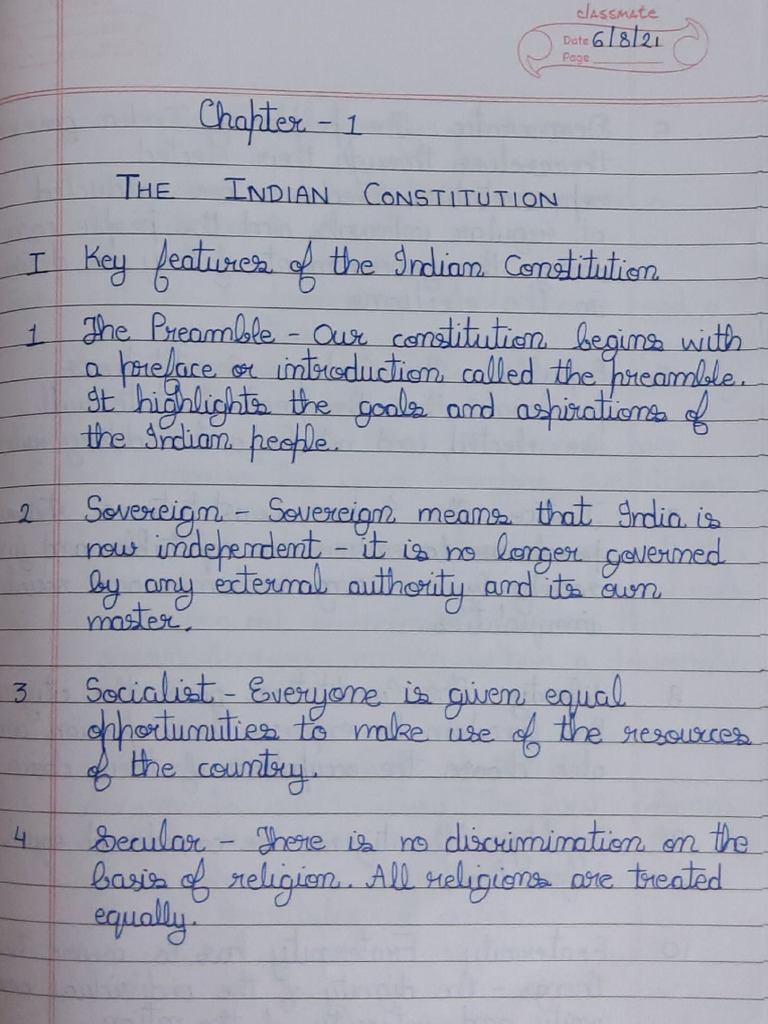 classmate
Date 6/8/21
Page
Chapter - 1
THE INDIAN CONSTITUTION
I Key features of the Indian Constitution
1 The Preamble - Our constitution begins with
a preface or introduction called the preamble.
It highlights the goals and aspirations of
the Indian people.
2 Sovereign - Sovereign means that India is
now independent - it is no longer governed
by any external authority and its own
master.
3 Socialist - Everyone is given equal
opportunities to make use of the resources
of the country.
4 Secular - There is no discrimination on the
basis of religion. All religions are treated
equally.